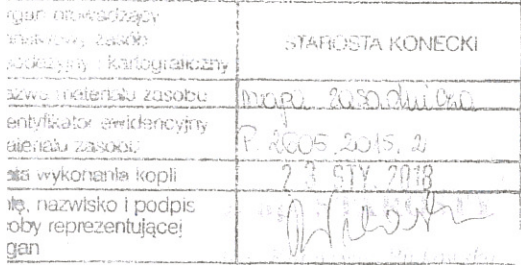 rgan prowadzący
zasób
STAROSTA KONECKI
i kartograficzny
azwa materiału zasobu
mapa zasadnicza
entyfikator ewidencyjny
ateriału zasobu
P. 2605.2015. 2
ata wykonania kopii
2 3. STY. 2018
nię, nazwisko i podpis
oby reprezentującej
gan